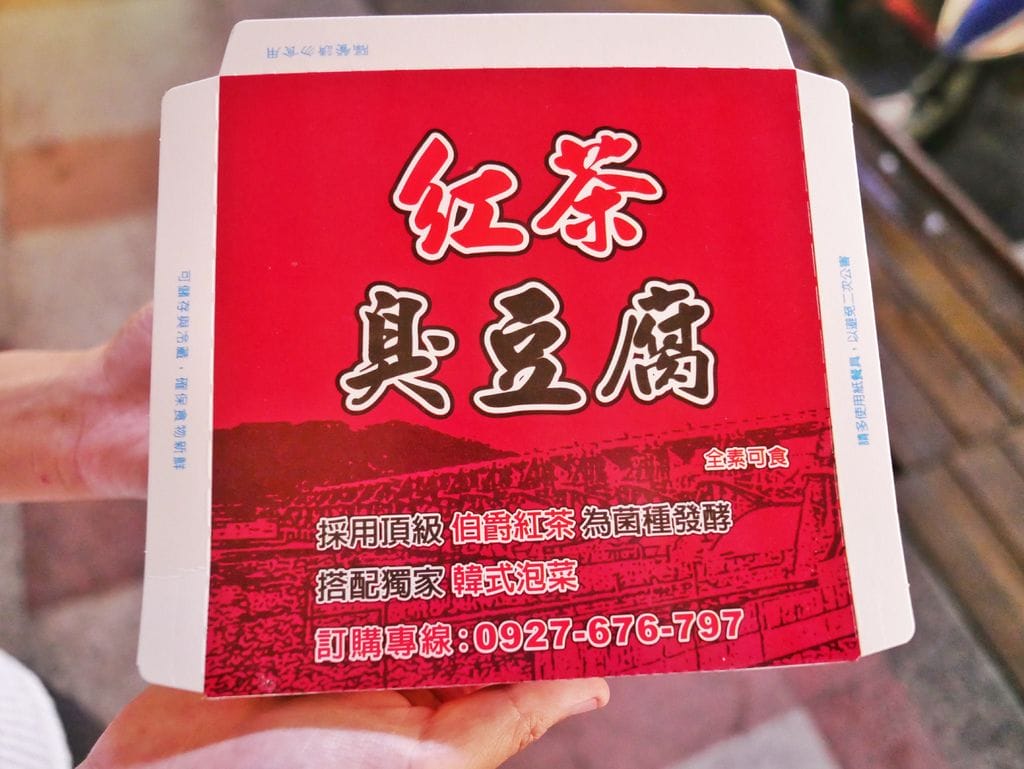 隔餐請勿食用
紅茶
臭豆腐
全素可食
採用頂級 伯爵紅茶 為菌種發酵
搭配獨家 韓式泡菜
訂購專線:0927-676-797
請多使用紙餐具,以避免二次公害